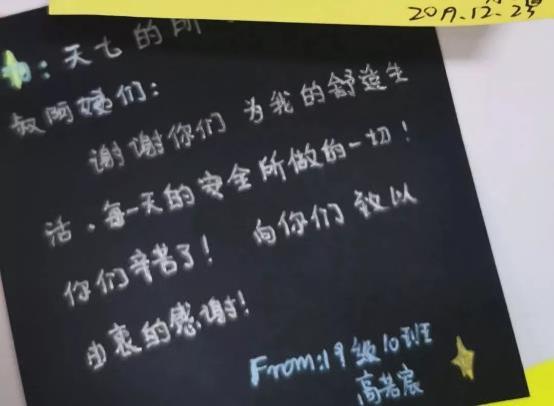 2019.12.23
: 天七的所
叔阿姨们:
谢谢你们为我的舒适生
活、每一天的安全所做的一切!
你们辛苦了! 向你们致以
由衷的感谢!
From:19级10班
高若宸